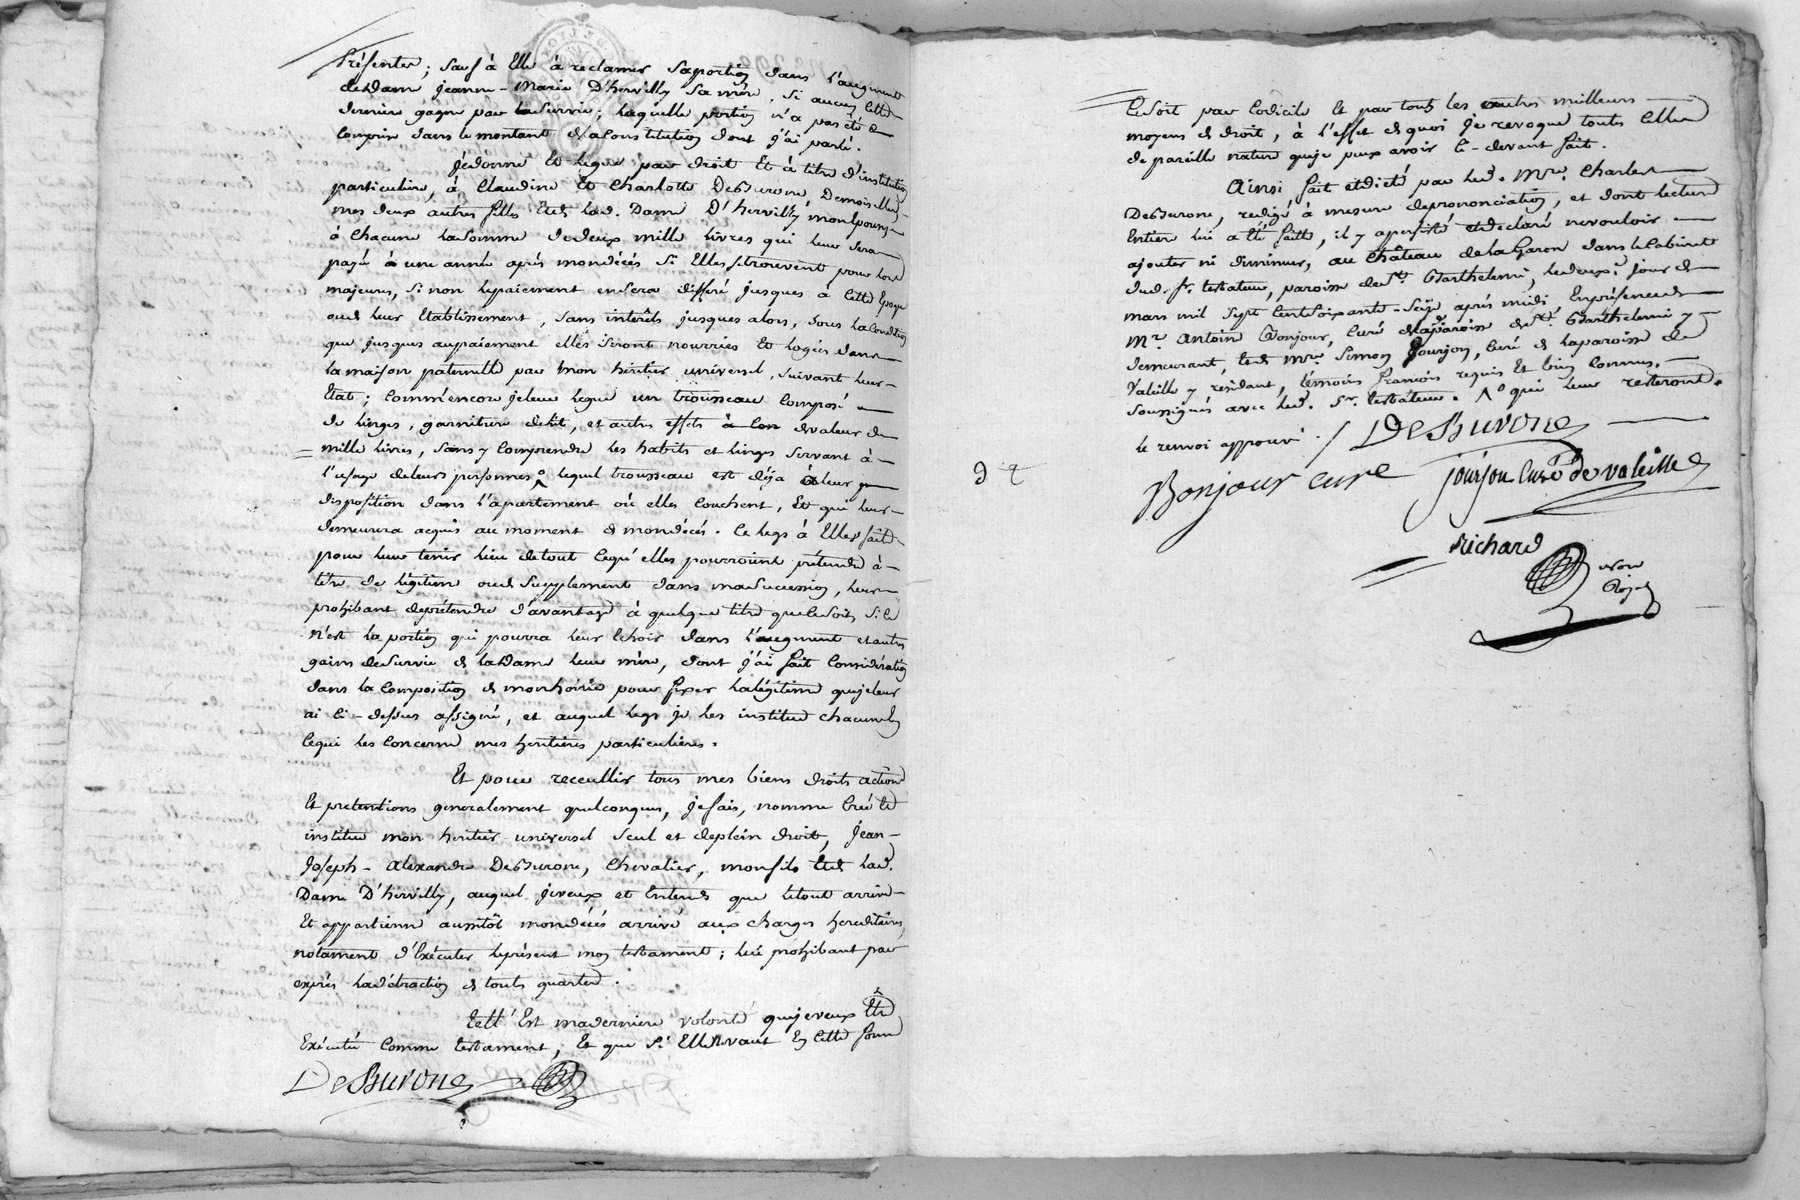 présenter; sauf à Elle à reclamer sa portion dans l'augment
de Dame jeanne-Marie D'hervilly sa mère, si aucun cette
derniere gagne par la survie; laquelle portion n'a pas été
comprise dans le montant de la constitution dont j'ai parlé.
je donne Et legue par droit Et à titre d'institution
particuliere, à Claudine Et Charlotte DesBurone, Demoiselles
mes deux autres filles Et de lad. Dame D'hervilly, mon Epouse
à chacune la somme de deux mille livres qui leur sera
payé à une année après mon décés si Elles se trouvent pour lors
majeures, si non le paiement en sera differé jusques à cette Epoque
ou de leur Etablissement, sans intérêts jusques alors, sous la condition
que jusques au paiement elles seront nourries Et logées dans
la maison paternelle par mon héritier universel, suivant leur
Etat; comm'encore je leur legue un trousseau composé
de linges, garniture de lit, et autres effets de valeur de
mille livres, sans y comprendre les habits et linges servant à
l'usage de leurs personnes ^o lequel trousseau est déja à leur
disposition dans l'apartement où elles couchent, Et qui leur
demeurera acquis au moment de mon décés. Ce legs à Elles fait
pour leur tenir lieu de tout ce qu'elles pourroint prétendre à
titre de légitime ou de supplement dans ma sucession, leur
prohibant de prétendre d'avantage à quelque titre que ce soit, si ce
n'est la portion qui pourra leur échoir dans l'augment et autres
gains de survie de la Dame leur mère, dont j'ai fait considération
dans la composition de mon hoirie pour fixer la légitime que je leur
ai ci-dessus assigné, et auquel legs je les institue chacune en
ce qui les concerne mes heritieres particulieres.
Et pour receullir tous mes biens droits actions
Et pretentions generalement quelconques, je fais, nomme crée Et
institue mon heritier universel seul et de plein droit, jean-
joseph-alexandre DesBurone, chevalier, mon fils Et de lad.
Dame D'hervilly, auquel je veux et Entends que le tout arrive
Et appartienne aussitôt mon décés arrivé aux charges hereditaires,
notament d'Exécuter le présent mon testament; lui prohibant par
exprés la détraction de touts quarter.
Tell' Est ma derniere volonté que je veux être
Exécutée comme testament, Et que si Elle ne vaut En cette forme
DesBurone
ce soit par codicile Et par touts les autres meilleurs
moyens de droit, à l'effet de quoi je revoque touts celles
de pareille nature que je peux avoir ci-devant fait.
Ainsi fait et dicté par led. Mre. Charles
DesBurone, redigé à mesure de prononciation, et dont lecture
Entiere lui a été faite, il y a persisté et declaré ne vouloir
ajouter ni diminuer, au Château de la Garon dans le Cabinet
dud. sr. testateur, paroisse de St. Barthelemi, le deuxe. jour de
mars mil sept cent soixante-seize après midi, En présence de
Mr. Antoine Bonjour, curé de la paroisse de St. Barthelemi y
demeurant, et de Mre. Simon Jourjon, curé de la paroisse de
Valeille y résidant, témoins françois requis Et bien connus,
soussignés avec led. sr. testateur. ^o qui leur resteront.
le renvoi approuvé ./ DesBurone
Bonjour curé jourjon Curé de valeille
Richard
nore
Royal